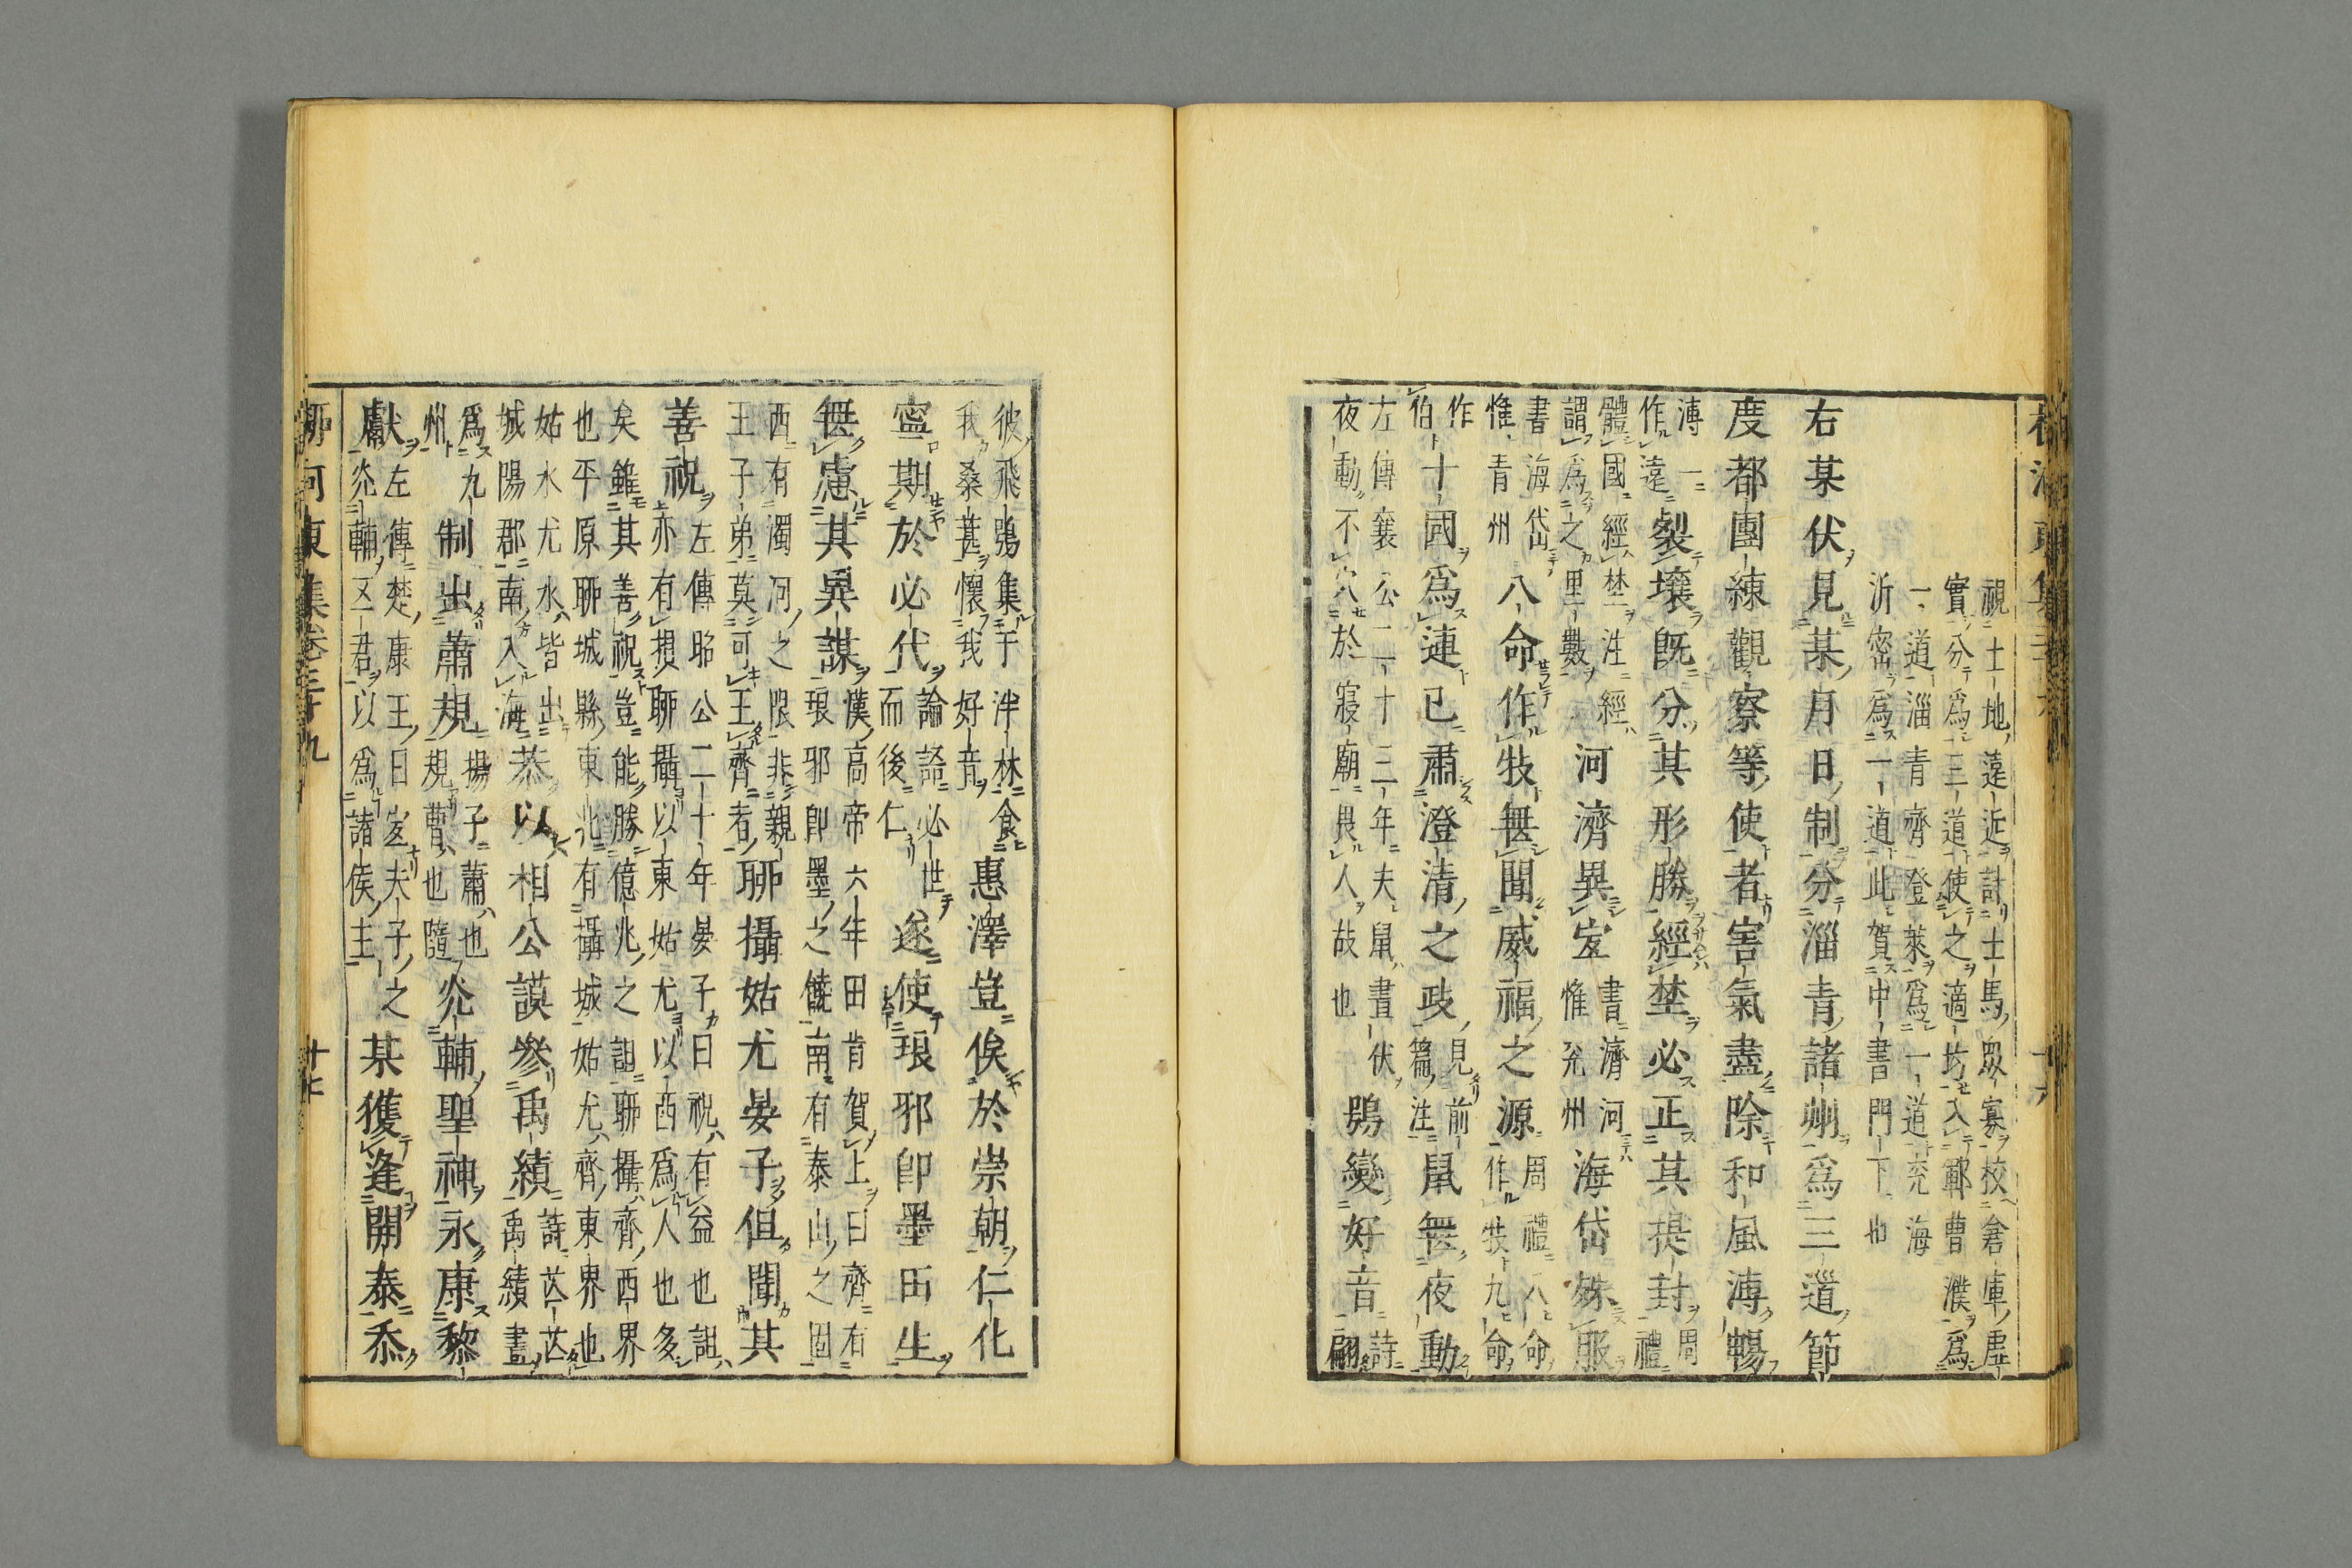 視士地遠近計士馬衆寡校倉庫虛
實分爲三道使之適均入鄆曹濮爲
一道淄青齊登萊爲一道兗海
沂密爲一道此賀中書門下也
右某伏見某月日制分淄青諸州爲三道節
度都團練觀察等使者害氣盡除和風溥暢
溥一作遠裂壤既分其形勝經埜必正其提封周禮
體國經埜注經謂爲之里數河濟異宐書濟河惟兗州海岱殊服
書海岱惟青州八命作牧無聞威福之源周禮八命作牧九命
作伯十國爲連已肅澄清之政見前篇注鼠無夜動
左傳襄公二十三年夫鼠晝伏夜動不穴於寢廟畏人故也鴞變好音詩翩
彼飛鴞集于泮林食我桑葚懷我好音惠澤豈俟於崇朝仁化
寧期於必代論語必世而後仁遂使琅邪卽墨田生
無慮其異謀漢高帝六年田肯賀上曰齊有琅邪卽墨之饒南有泰山之固
西有濁河之限非親王子弟莫可王齊者聊攝姑尤晏子但聞其
善祝左傳昭公二十年晏子曰祝有益也詛亦有損聊攝以東姑尤以西爲人也多
矣雖其善祝豈能勝億兆之詛聊攝齊西界也平原聊城縣東北有攝城姑尤齊東界也
姑水尤水皆出城陽郡南入海恭以相公謨參禹績詩芯芯禹績畫
爲九州制出蕭規揚子蕭也規曹也隨光輔聖神永康黎
獻左傳楚康王曰宐夫子之光輔五君以爲諸侯主某獲逢開泰忝
柳河東集卷三十九 十七